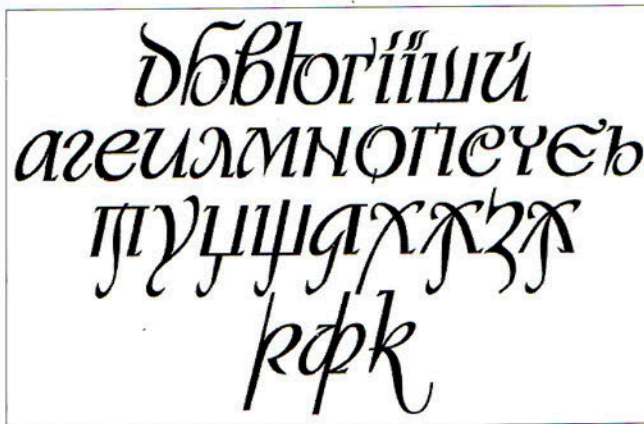 дбвюґіїшй
агеилмнопсчєь
туцщяхжзж
рфк